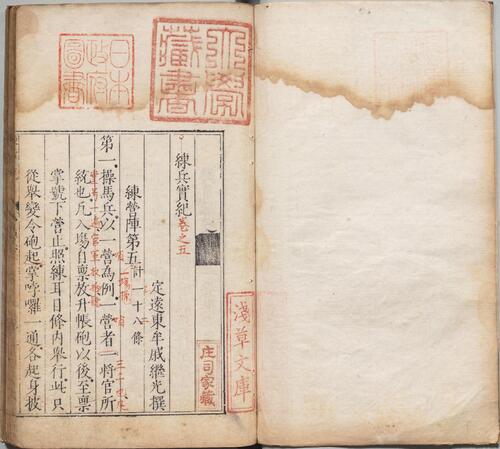 練兵實紀卷之五
定遠東牟戚繼光撰
練營陣第五計二十八條
第一操馬兵以一營為例一營者一將官所
統也凡入場自禀放升帳砲以後至禀
掌號下營止照練耳目條内舉行此只
從舉變令砲起掌哱囉一通各起身披
日本
政府
圖書
藏書
淺草文庫
庄司家藏